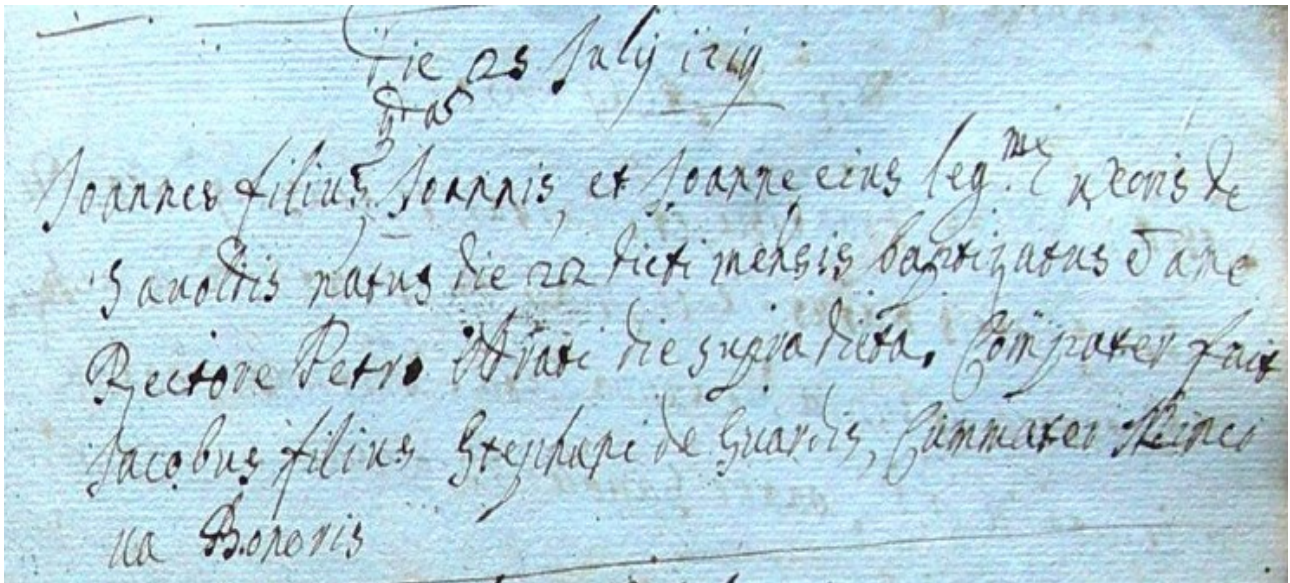 Die 25 July 1719
Joannes filius Joannis, et Joannę eius leg.mę uxoris de
Savoldis natus die 22 dicti mensis baptizatus ē a me
Rectore Petro die supradicta. Compater fuit
Jacobus filius Stephani de Guardis, Cummater
Boneris